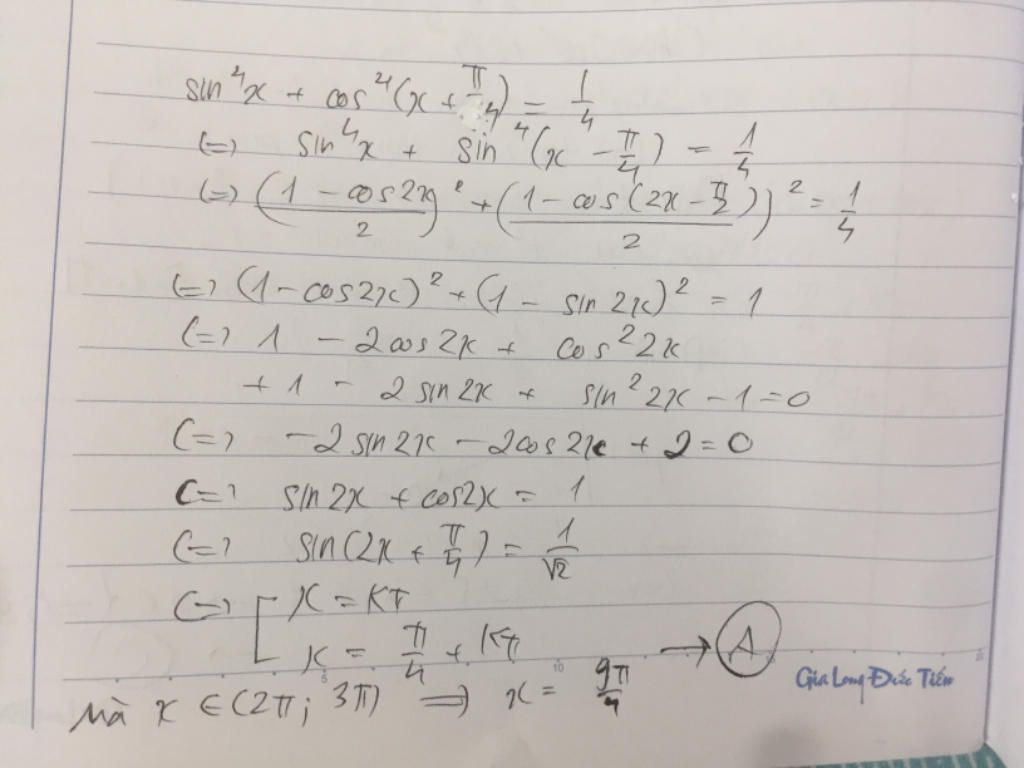 sin⁴x + cos⁴(x + π/4) = 1/4
(=) sin⁴x + sin⁴(x - π/4) = 1/4
(=) ((1 - cos2x)/2)² + ((1 - cos(2x - π/2))/2)² = 1/4
(=) (1 - cos2x)² + (1 - sin2x)² = 1
(=) 1 - 2cos2x + cos²2x
+ 1 - 2sin2x + sin²2x - 1 = 0
(=) -2sin2x - 2cos2x + 2 = 0
(=) sin2x + cos2x = 1
(=) sin(2x + π/4) = 1/√2
(=) [ x = kπ
x = π/4 + kπ → A
Gia Long Đức Tiến
Mà x ∈ (2π; 3π) => x = 9π/4